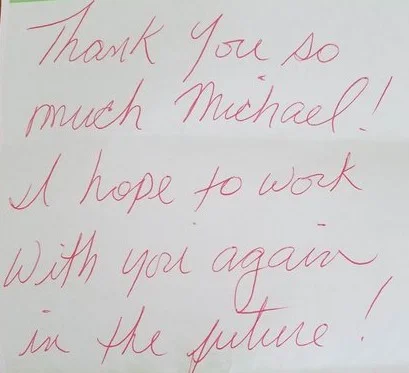 Thank You so
much Michael!
I hope to work
With you again
in the future!